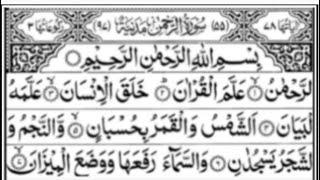 اٰیاتها ۷۸ (۵۵) سُوْرَةُ الرَّحْمٰنِ مَدَنِیَّةٌ (۹۷) رکوعاتها ۳
بِسْمِ اللّٰهِ الرَّحْمٰنِ الرَّحِیْمِ
اَلرَّحْمٰنُ ۙ۱ عَلَّمَ الْقُرْاٰنَ ؕ۲ خَلَقَ الْاِنْسَانَ ۙ۳ عَلَّمَهُ
الْبَیَانَ ۴ اَلشَّمْسُ وَ الْقَمَرُ بِحُسْبَانٍ ۪۵ وَّ النَّجْمُ وَ
الشَّجَرُ یَسْجُدٰنِ ۶ وَ السَّمَآءَ رَفَعَهَا وَ وَضَعَ الْمِیْزَانَ ۙ۷